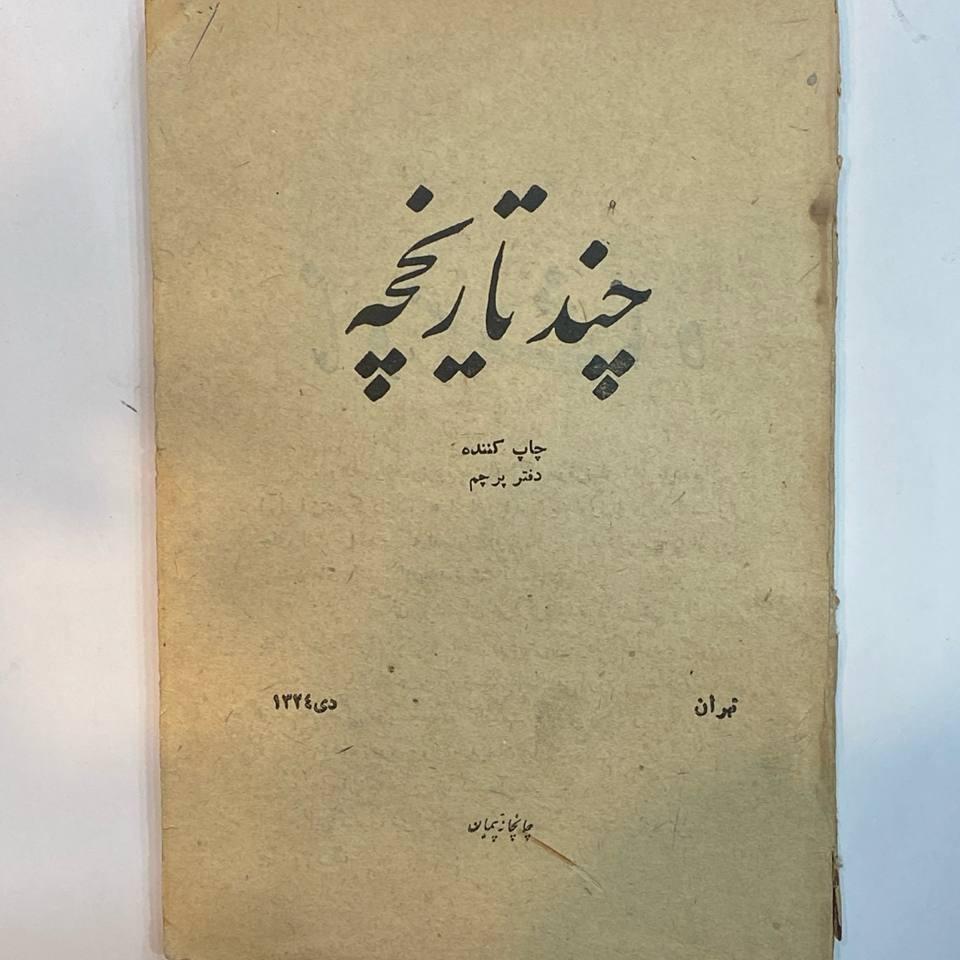 چند تاریخچه
چاپ کننده
دفتر پرچم
تهران
دی ۱۳۲٤
چاپخانهٔ پیمان